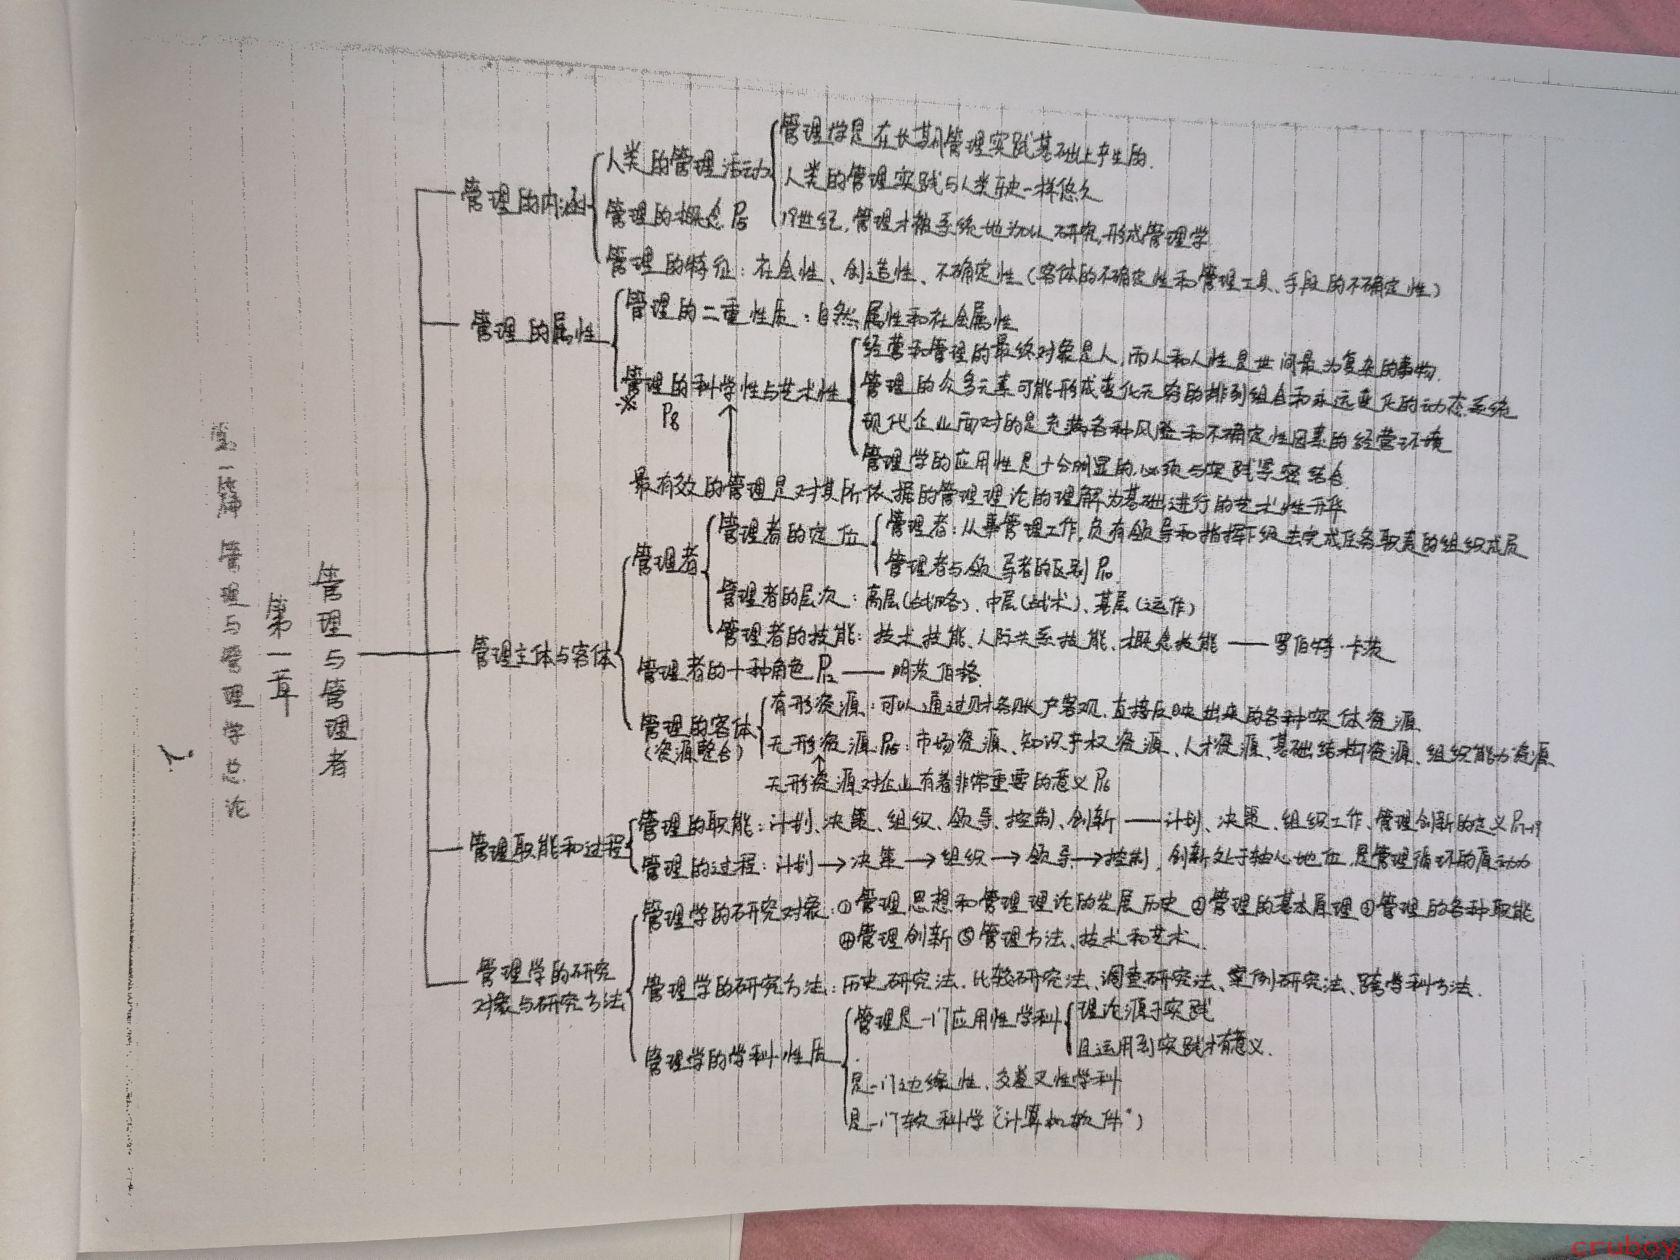 第一篇 管理与管理学总论
第一章
管理与管理者
管理的内涵
人类的管理活动
管理学是在长期管理实践基础上产生的.
人类的管理实践与人类历史一样悠久
19世纪,管理才被系统地加以研究,形成管理学
管理的概念 P5
管理的特征:社会性、创造性、不确定性(客体的不确定性和管理工具、手段的不确定性)
管理的属性
管理的二重性质:自然属性和社会属性
管理的科学性与艺术性
※ P8
经营和管理的最终对象是人,而人和人性是世间最为复杂的事物.
管理的众多元素可能形成变化无穷的排列组合和永远变化的动态系统
现代企业面对的是充满各种风险和不确定性因素的经营环境
管理学的应用性是十分明显的,必须与实践紧密结合
最有效的管理是对其所依据的管理理论的理解为基础进行的艺术性升华
管理主体与客体
管理者
管理者的定位
管理者:从事管理工作,负有领导和指挥下级去完成任务职责的组织成员
管理者与领导者的区别
管理者的层次:高层(战略)、中层(战术)、基层(运作)
管理者的技能:技术技能、人际关系技能、概念技能——罗伯特·卡茨
管理者的十种角色 ——明茨伯格
管理的客体
(资源整合)
有形资源:可以通过财务账户客观、直接反映出来的各种实体资源
无形资源 :市场资源、知识产权资源、人才资源、基础结构资源、组织能力资源
无形资源对企业有着非常重要的意义
管理职能和过程
管理的职能:计划、决策、组织、领导、控制、创新——计划、决策、组织工作、管理创新的定义
管理的过程:计划→决策→组织→领导→控制,创新处于轴心地位,是管理循环的原动力
管理学的研究
对象与研究方法
管理学的研究对象:①管理思想和管理理论的发展历史 ②管理的基本原理 ③管理的各种职能
④管理创新 ⑤管理方法、技术和艺术.
管理学的研究方法:历史研究法、比较研究法、调查研究法、案例研究法、跨学科方法.
管理学的学科性质
管理是一门应用性学科
理论源于实践
且运用到实践才有意义.
是一门边缘性、交叉性学科
是一门软科学(“计算机软件”)
cruboy